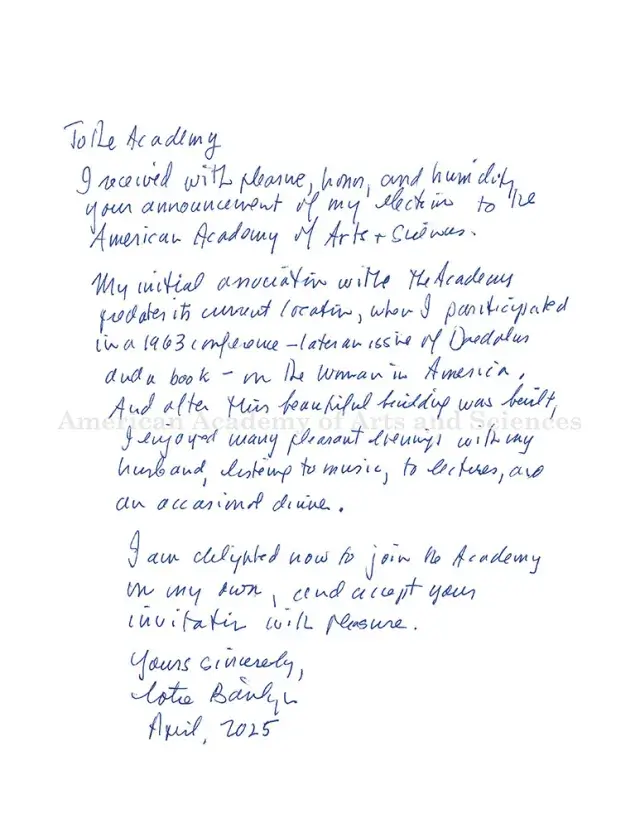 To the Academy
I received with pleasure, honor, and humility,
your announcement of my election to the
American Academy of Arts + Sciences.
My initial association with the Academy
predates its current location, when I participated
in a 1963 conference – later an issue of Daedalus
and a book – on the Woman in America.
And after this beautiful building was built,
American Academy of Arts and Sciences
I enjoyed many pleasant evenings with my
husband, listening to music, to lectures, and
an occasional dinner.
I am delighted now to join the Academy
on my own, and accept your
invitation with pleasure.
Yours sincerely,
Lotte Bailyn
April, 2025